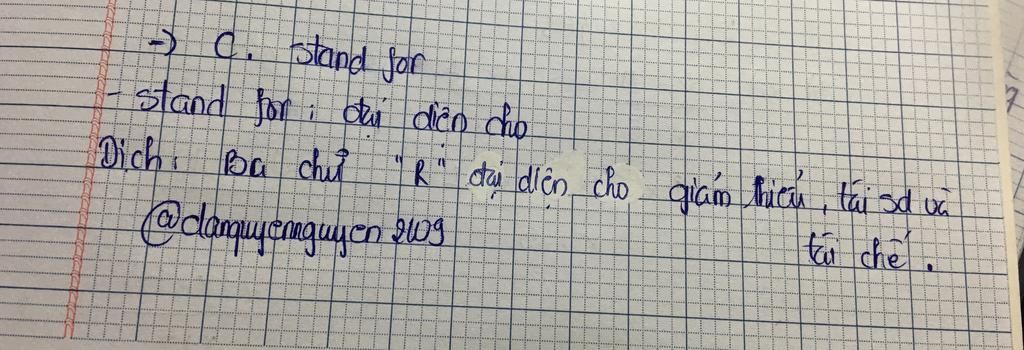 → C. stand for
- stand for : đại diện cho
Dịch: Ba chữ "R" đại diện cho giảm thiểu, tái sd và
tái chế.
@danquyennguyen2109